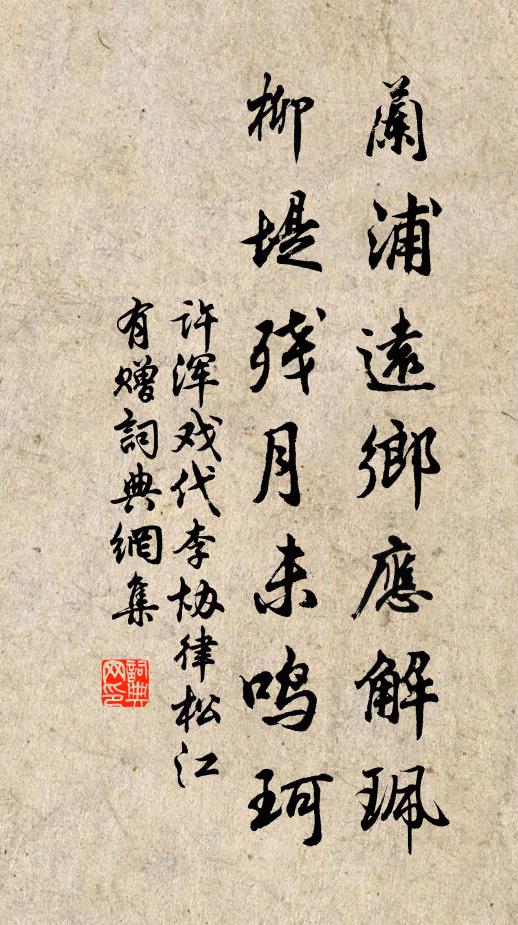 蘭浦遠鄉應解珮
柳堤残月未鳴珂
许浑戏代李协律松江
有赠詞典網集
詞典网印